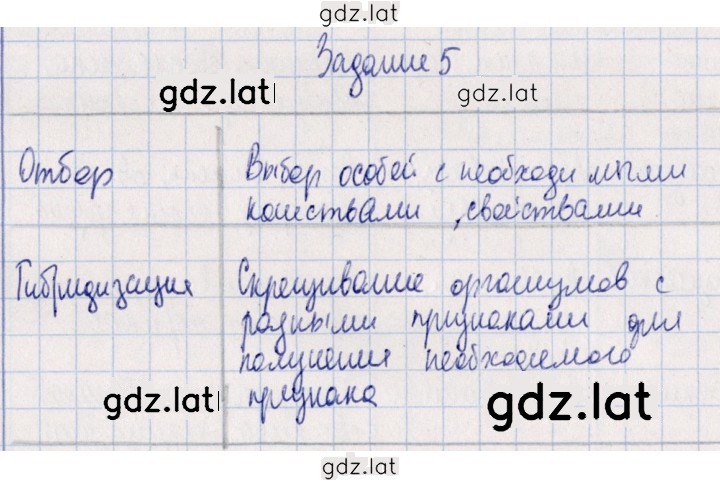 gdz.lat
Задание 5
gdz.lat gdz.lat
Отбор Выбор особей с необходимыми
качествами, свойствами
Гибридизация Скрещивание организмов с
разными признаками для
получения необходимого
признака
gdz.lat gdz.lat
gdz.lat